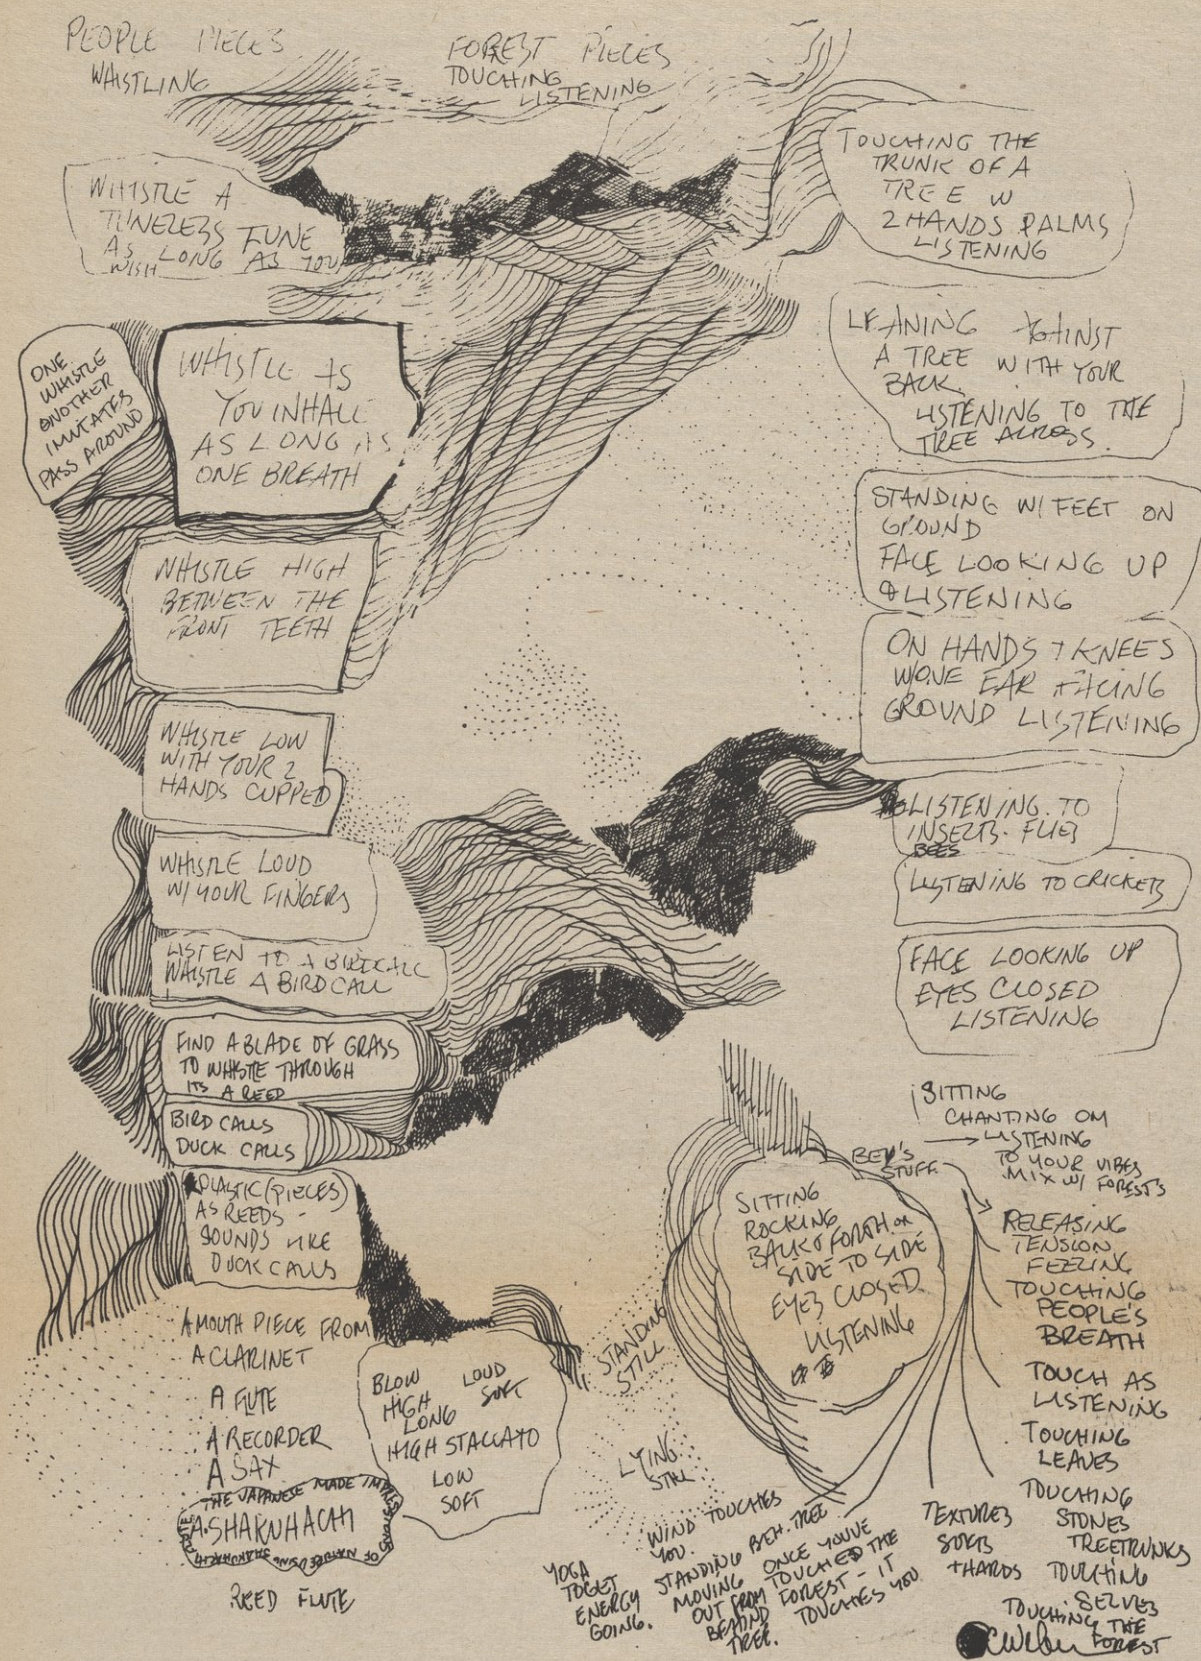 PEOPLE PIECES
WHISTLING
FOREST PIECES
TOUCHING
LISTENING
WHISTLE A
TUNELESS TUNE
AS LONG AS YOU
WISH
ONE
WHISTLE
ANOTHER
IMITATES
PASS AROUND
WHISTLE AS
YOU INHALE
AS LONG AS
ONE BREATH
WHISTLE HIGH
BETWEEN THE
FRONT TEETH
WHISTLE LOW
WITH YOUR 2
HANDS CUPPED
WHISTLE LOUD
W/ YOUR FINGERS
LISTEN TO A BIRDCALL
WHISTLE A BIRD CALL
FIND A BLADE OF GRASS
TO WHISTLE THROUGH
ITS A REED
BIRD CALLS
DUCK CALLS
PLASTIC (PIECES)
AS REEDS -
SOUNDS LIKE
DUCK CALLS
A MOUTH PIECE FROM
A CLARINET
A FLUTE
A RECORDER
A SAX
THE JAPANESE MADE IMPRESSIONS
OF NATURE USING SHAKUHACHI
A. SHAKUHACHI
REED FLUTE
BLOW LOUD
HIGH SOFT
LONG
HIGH STACCATO
LOW
SOFT
TOUCHING THE
TRUNK OF A
TREE W
2 HANDS PALMS
LISTENING
LEANING AGAINST
A TREE WITH YOUR
BACK
LISTENING TO THE
TREE ACROSS.
STANDING W/ FEET ON
GROUND
FACE LOOKING UP
& LISTENING
ON HANDS + KNEES
W ONE EAR FACING
GROUND LISTENING
LISTENING TO
INSECTS - FLIES
BEES
LISTENING TO CRICKETS
FACE LOOKING UP
EYES CLOSED
LISTENING
SITTING
CHANTING OM
LISTENING
TO YOUR VIBES
MIX W/ FOREST'S
BEV'S
STUFF
SITTING
ROCKING
BACK & FORTH OR
SIDE TO SIDE
EYES CLOSED
LISTENING
STANDING
STILL
LYING
STILL
RELEASING
TENSION
FEELING
TOUCHING
PEOPLE'S
BREATH
TOUCH AS
LISTENING
TOUCHING
LEAVES
TOUCHING
STONES
TREETRUNKS
TOUCHING
SELVES
TOUCHING THE
FOREST
TEXTURES
SOFTS
+ HARDS
WIND TOUCHES
YOU.
STANDING BEH. TREE
MOVING
OUT FROM
BEHIND
TREE.
ONCE YOU'VE
TOUCHED THE
FOREST - IT
TOUCHES YOU
YOGA
TO GET
ENERGY
GOING.